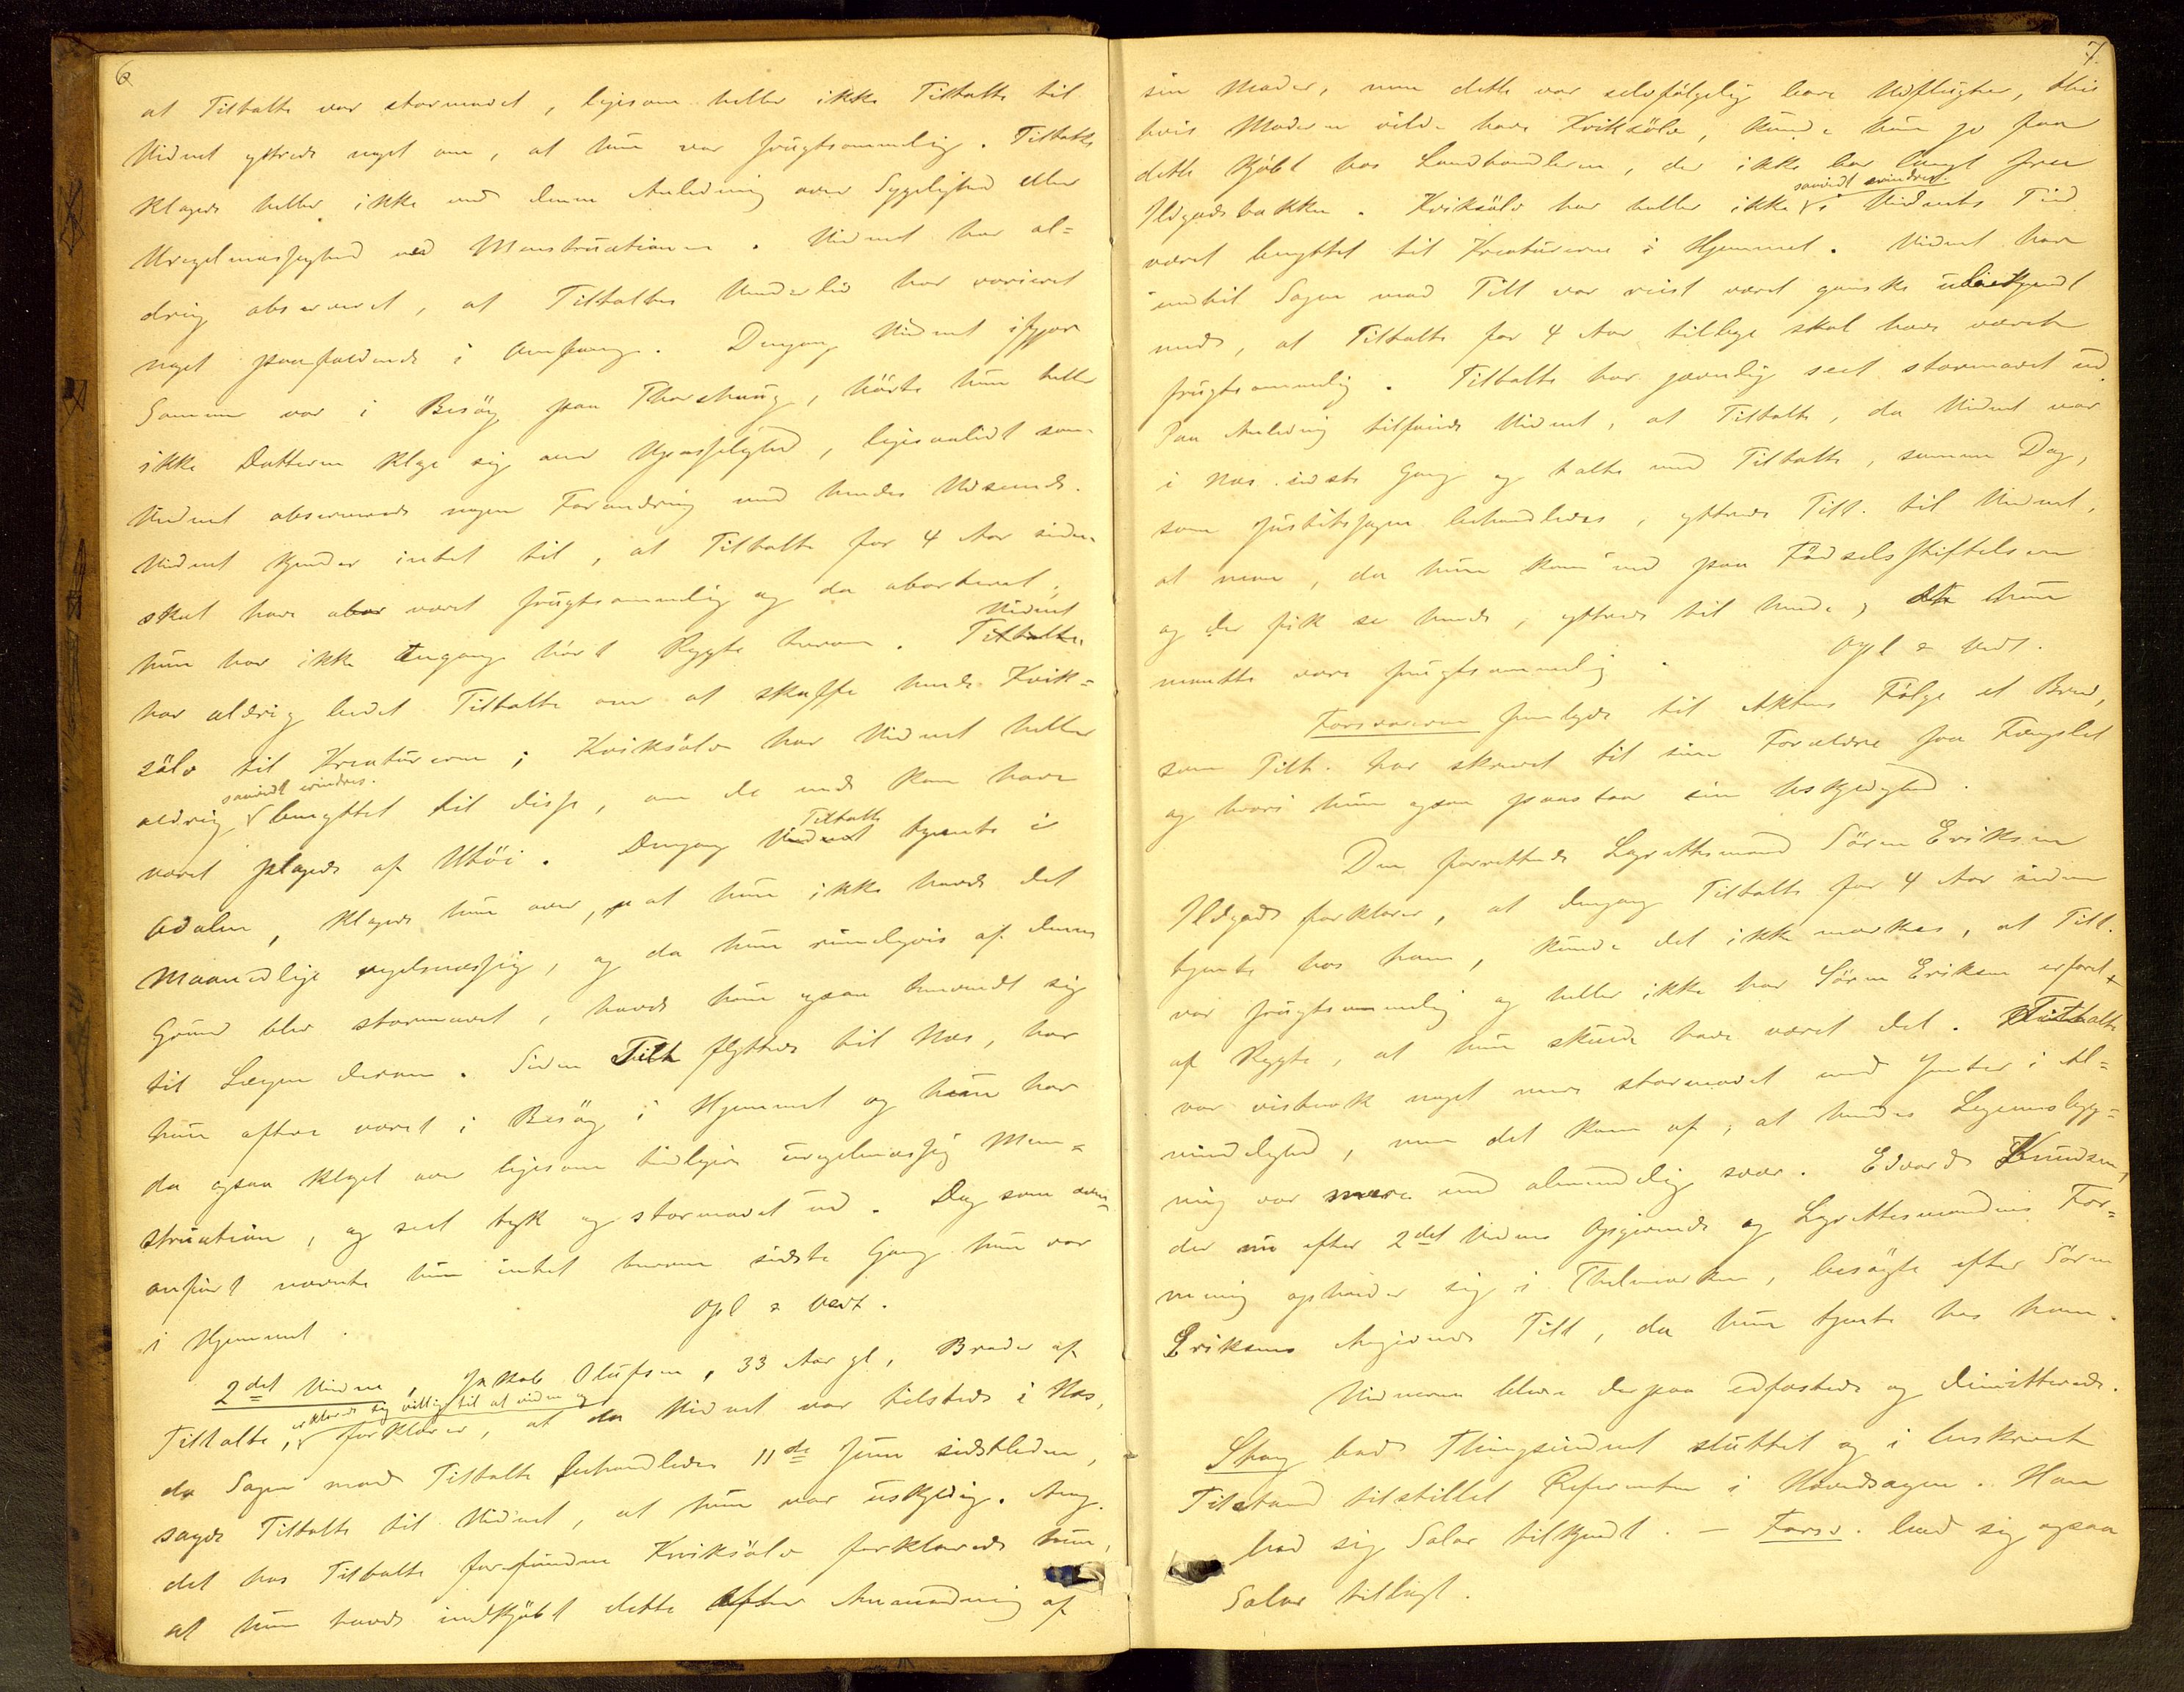 6
at Tiltalte var stormavet, ligesom heller ikke Tiltalte til
Vidnet ytrede noget om, at hun var frugtsommelig. Tiltalte
klagede heller ikke ved denne Anledning over Sygelighed eller
Uregelmæssighed ved Menstruationen. Vidnet har al=
drig observeret, at Tiltaltes Underliv har varieret
noget paafaldende i Omfang. Dengang Vidnet ifjor
Sommer var i Besøg paa Thorshaug, hørte hun heller
ikke Datteren klage sig over Upasselighed, ligesaalidt som
Vidnet observerede nogen Forandring med hendes Udseende.
Vidnet kjender intet til, at Tiltalte for 4 Aar siden
skal have abor været frugtsommelig og da aborteret;
hun har ikke engang hørt Rygte herom. Tiltalte Vidnet
har aldrig bedet Tiltalte om at skaffe hende Kvik=
sølv til Kreaturerne; Kviksølv har Vidnet heller
aldrig saavidt erindres. benyttet til disse, om de end kan have
været plaget af Utøi. Dengang Vidnet Tiltalte tjente i
Adalen, klagede hun over, at hun ikke havde det
Maanedlige regelmæssig, og da hun rimeligvis af denne
Grund blev stormavet, havde hun ogsaa henvendt sig
til Lægen derom. Siden Tilt flyttede til Næs, har
hun oftere været i Besøg i Hjemmet og hun har
da ogsaa klaget over ligesom tidligere uregelmæssig Men=
struation, og seet tyk og stormavet ud. Dog som oven=
anført nævnte hun intet herom sidste Gang hun var
i Hjemmet. Opl & Vedt.
2det Vidne, Jakob Olufsen, 33 Aar gl, Broder af
Tiltalte, erklærede sig villig til at vidne og forklarer, at da Vidnet var tilstede i Næs,
da Sagen mod Tiltalte behandledes 11te Juni sidstleden,
sagde Tiltalte til Vidnet, at hun var uskyldig. Ang.
det hos Tiltalte forefundne Kviksølv forklarede hun,
at hun havde indkjøbt dette efter Anmodning af
7.
sin Moder, men dette var selvfølgelig bare Udflugter, thi
hvis Moderen vilde have Kviksølv, kunde hun jo faa
dette kjøbt hos Landhandleren, der ikke bor langt fra
Ildjernsbakken. Kviksølv har heller ikke saavidt erindres i Vidnets Tid
været benyttet til Kreaturerne i Hjemmet. Vidnet har
indtil Sagen mod Tilt var reist været ganske ubekjendt
med, at Tiltalte for 4 Aar tilbage skal have været
frugtsommelig. Tiltalte har jævnlig seet stormavet ud.
Paa Anledning tilføiede Vidnet, at Tiltalte, da Vidnet var
i Næs sidste Gang og talte med Tiltalte, samme Dag,
som Justitssagen behandledes, ytrede Tilt. til Vidnet,
at man, da hun kom ind paa Fødselsstiftelsen
og der fik se hende, ytrede til hende, at hun
maatte være frugtsommelig. Opl & Vedt.
Forsvareren fremlagde til Aktens Følge et Brev,
som Tilt. har skrevet til sine Forældre fra Fængslet
og hvori hun ogsaa paastaar sin Uskyldighed.
Den forrettende Lagrettesmand Søren Eriksen
forklarer, at dengang Tiltalte for 4 Aar siden
tjente hos ham, kunde det ikke mærkes, at Tilt.
var frugtsommelig og heller ikke har Søren Eriksen erfaret
af Rygte, at hun skulde have været det. Tiltalte
var vistnok noget mere stormavet end Jenter i Al=
mindelighed, men det kom af, at hendes Legemsbyg=
ning var mere end almindelig svær. Edvard Knudsen,
der nu efter 2det Vidnes Opgivende og Lagrettesmandens For=
mening opholder sig i Thelemarken, besøgte efter Søren
Eriksens Angivende Tilt, da hun tjente hos ham.
Vidnerne bleve derpaa edfæstede og dimitterede.
Stang bad Thingsvidnet sluttet og i beskrevet
Tilstand tilstillet Referenten i Hovedsagen. Han
bad sig Salær tilkjendt. – Forsv. bad sig ogsaa
Salær tillagt.